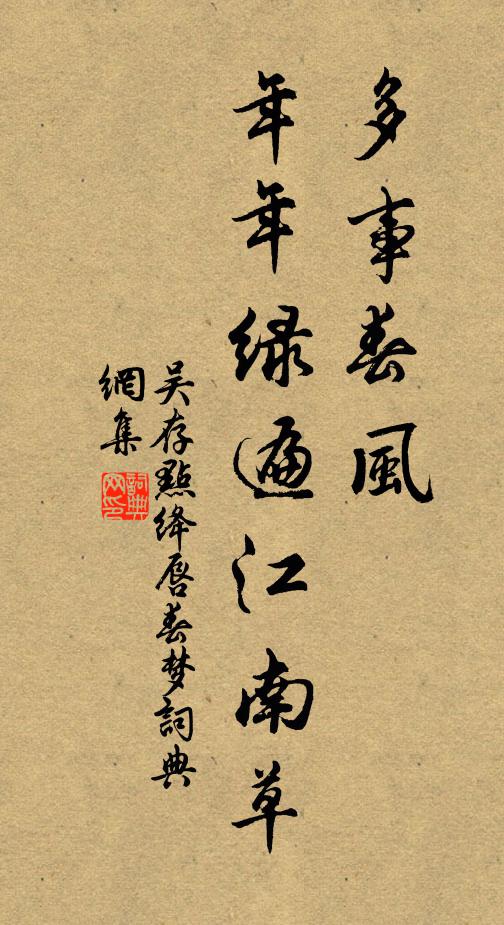 多事春風
年年綠遍江南草
吴存點绛唇春梦詞典
網集
詞典
网印